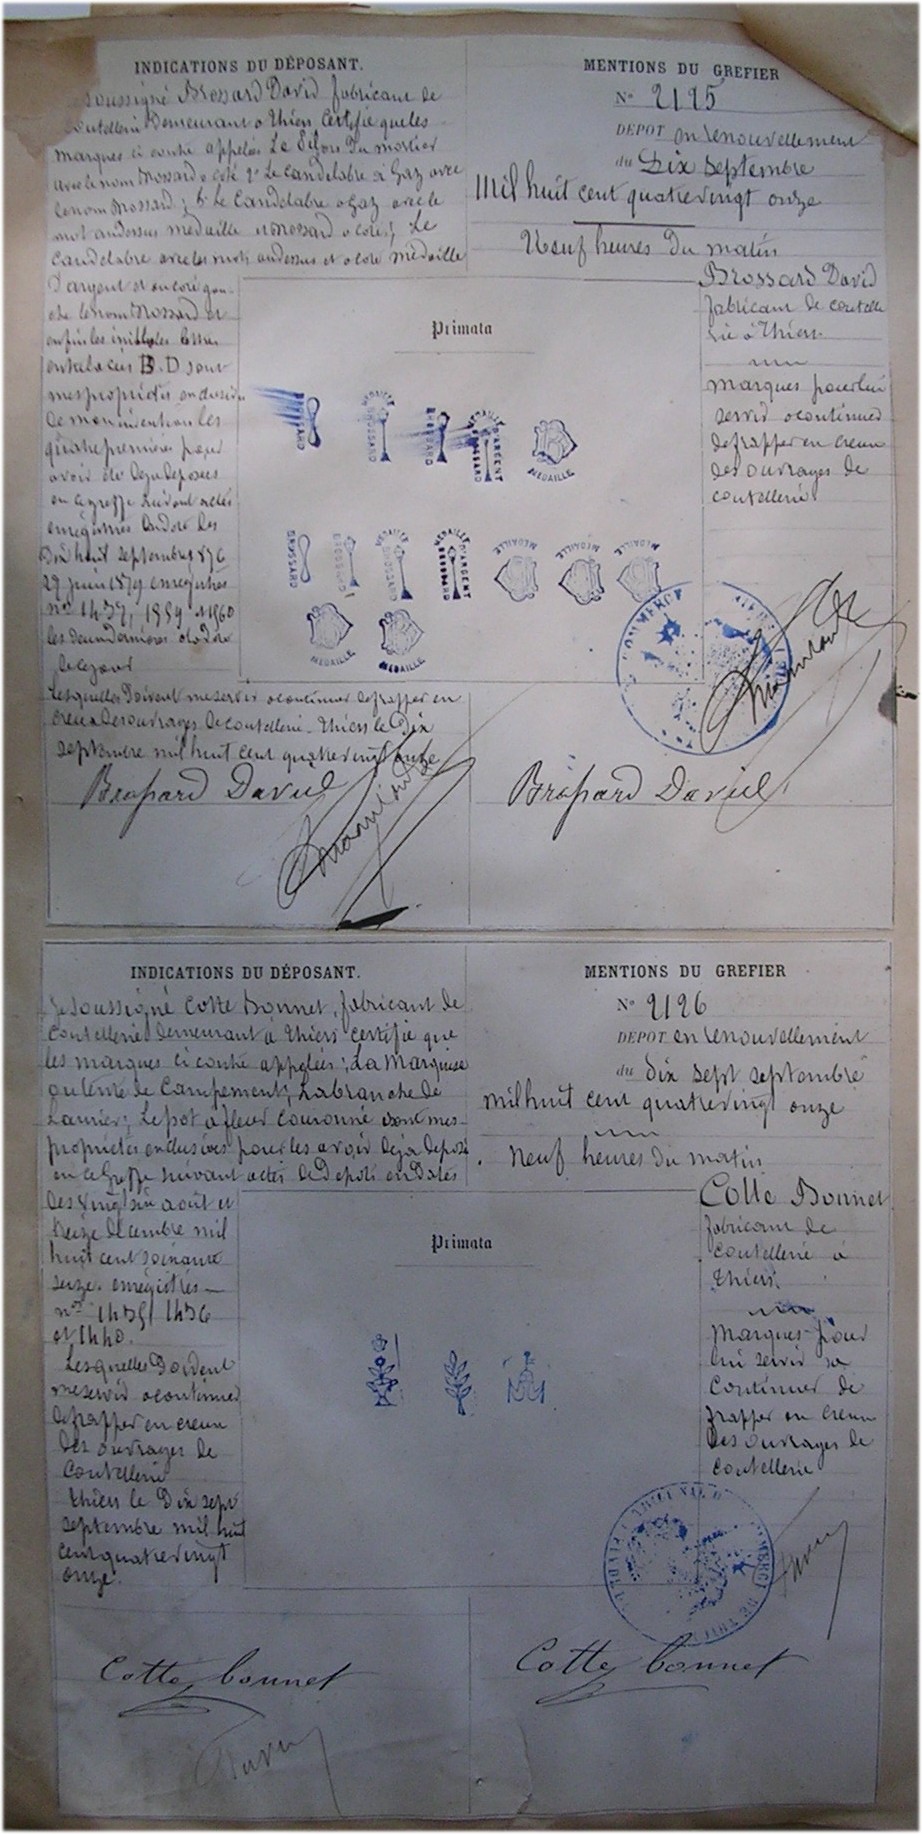 INDICATIONS DU DÉPOSANT.
soussigné Brossard David fabricant de
coutellerie Demeurant a Thiers Certifie que les
marques ci contre appelées Le Pilon Du mortier
avec le nom Brossard a coté 2° Le Candelabre à Gaz avec
le nom Brossard; Le Candelabre a Gaz avec le
mot audessus médaille Brossard a coté; Le
Candelabre avec les mots audessus et a coté medaille
D'argent et encore gau-
che le nom Brossard et
enfin les initiales lettres
entrelacées B.D sont
mes propriétés exclusives
de mon invention les
quatre premières pour
avoir été deja déposées
en ce greffe suivant actes
enregistrés des
Dix huit septembre 1876
29 juin 1879 enregistrés
nos 1439, 1859 et 1860
les deux dernieres
de ce jour
Lesquelles Doivent me servir a continuer de frapper en
creux des ouvrages de Coutellerie. Thiers le Dix
septembre mil huit cent quatrevingt onze
Brossard David
MENTIONS DU GREFIER
N° 2125
DEPOT en renouvellement
du Dix septembre
Mil huit cent quatrevingt onze
Neuf heures Du matin
Brossard David
fabricant de coutelle
rie a Thiers
marques pour lui
servir a continuer
de frapper en creux
des ouvrages de
coutellerie
Primata
BROSSARD
MEDAILLE BROSSARD
BROSSARD
MEDAILLE D'ARGENT BROSSARD
MEDAILLE
BROSSARD
BROSSARD
MEDAILLE BROSSARD
MEDAILLE D'ARGENT BROSSARD
MEDAILLE
MEDAILLE
MEDAILLE
MEDAILLE
MEDAILLE
COMMERCE
Brossard David
INDICATIONS DU DÉPOSANT.
Je soussigné Cotte Bonnet, fabricant de
Coutellerie demeurant à Thiers certifie que
les marques ci contre appelées; La Marquise
ou tente de Campement; La branche de
Laurier; Le pot a fleur couronné sont mes
propriétés exclusives pour les avoir déja déposé
en ce Greffe suivant actes de Depots en Dates
des vingt six août et
treize décembre mil
huit cent soixante
seize enregistrés
nos 1435, 1436
et 1440.
Lesquelles Doivent
me servir a continuer
de frapper en creux
des ouvrages de
Coutellerie
Thiers le Dix sept
septembre mil huit
cent quatrevingt
onze.
Cotte Bonnet
MENTIONS DU GREFIER
N° 2126
DEPOT en renouvellement
du dix sept septembre
mil huit cent quatrevingt onze
Neuf heures Du matin
Cotte Bonnet
fabricant de
Coutellerie à
Thiers.
Marques pour
lui servir a
Continuer de
frapper en creux
des ouvrages de
Coutellerie
Primata
TRIBUNAL DE COMMERCE DE THIERS
Cotte Bonnet